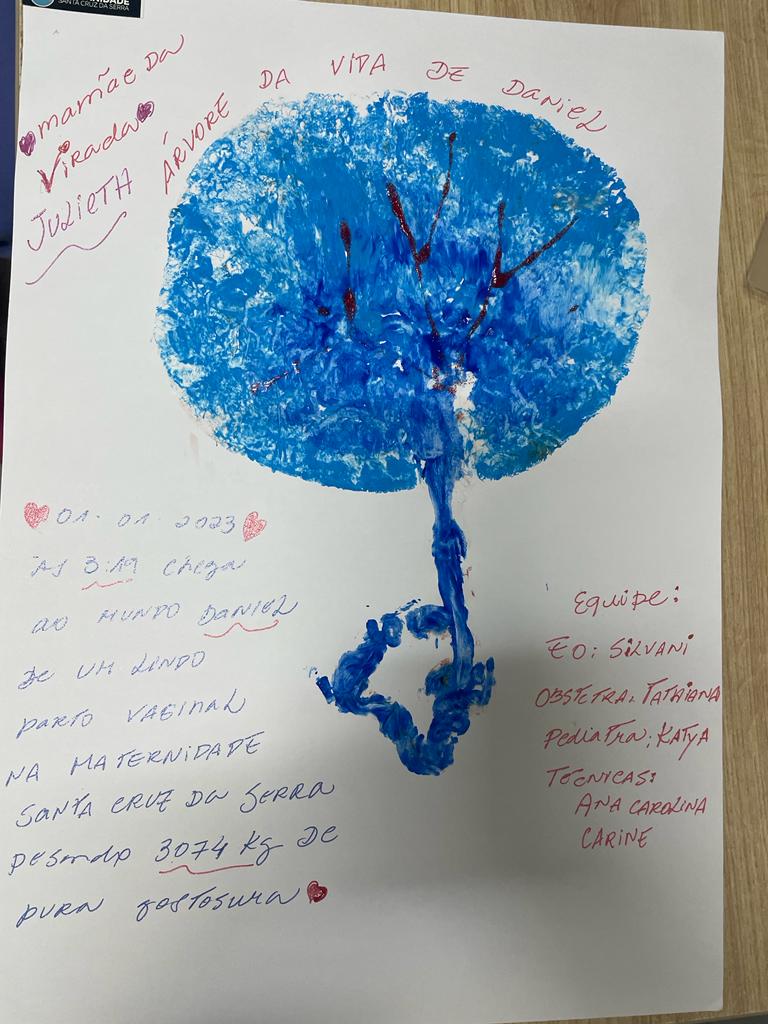 SANTA CRUZ DA SERRA
mamãe da
Virada
JULIETA
ÁRVORE DA VIDA DE DANIEL
01. 01. 2023
ÀS 3:19 chega
ao MUNDO DANIEL
DE UM LINDO
PARTO VAGINAL
NA MATERNIDADE
SANTA CRUZ DA SERRA
pesando 3074 Kg DE
pura gostosura
Equipe:
EO: SILVANI
OBSTETRA: TATHIANA
PediaTra: KATYA
TÉCNICAS:
ANA CAROLINA
CARINE